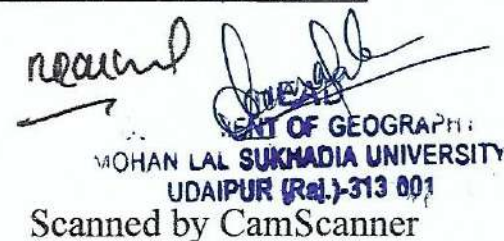 HEAD
ENT OF GEOGRAPH
MOHAN LAL SUKHADIA UNIVERSITY
UDAIPUR (Raj.)-313 001
Scanned by CamScanner